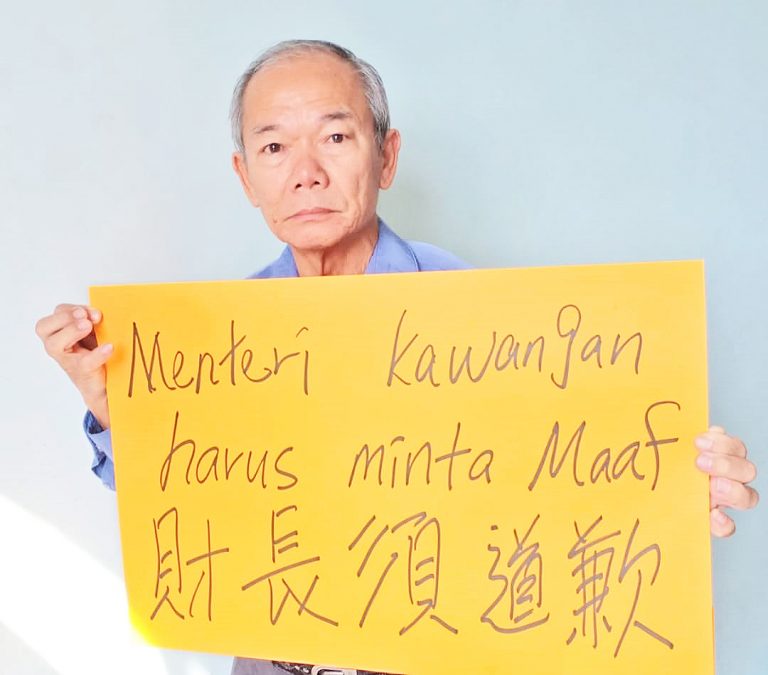 Menteri kawangan
harus minta Maaf
財長須道歉